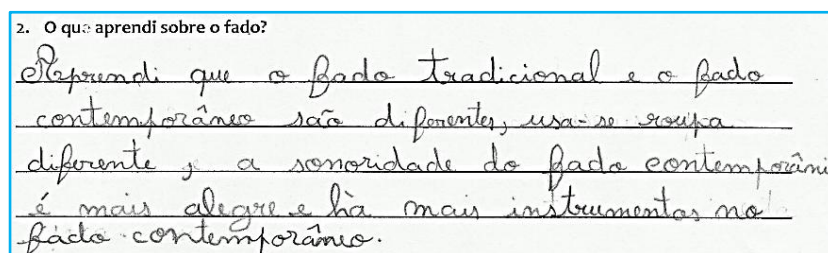 2. O que aprendi sobre o fado?
Aprendi que o fado tradicional e o fado
contemporâneo são diferentes, usa-se roupa
diferente, a sonoridade do fado contemporâni
é mais alegre e hà mais instrumentos no
fado contemporâneo.